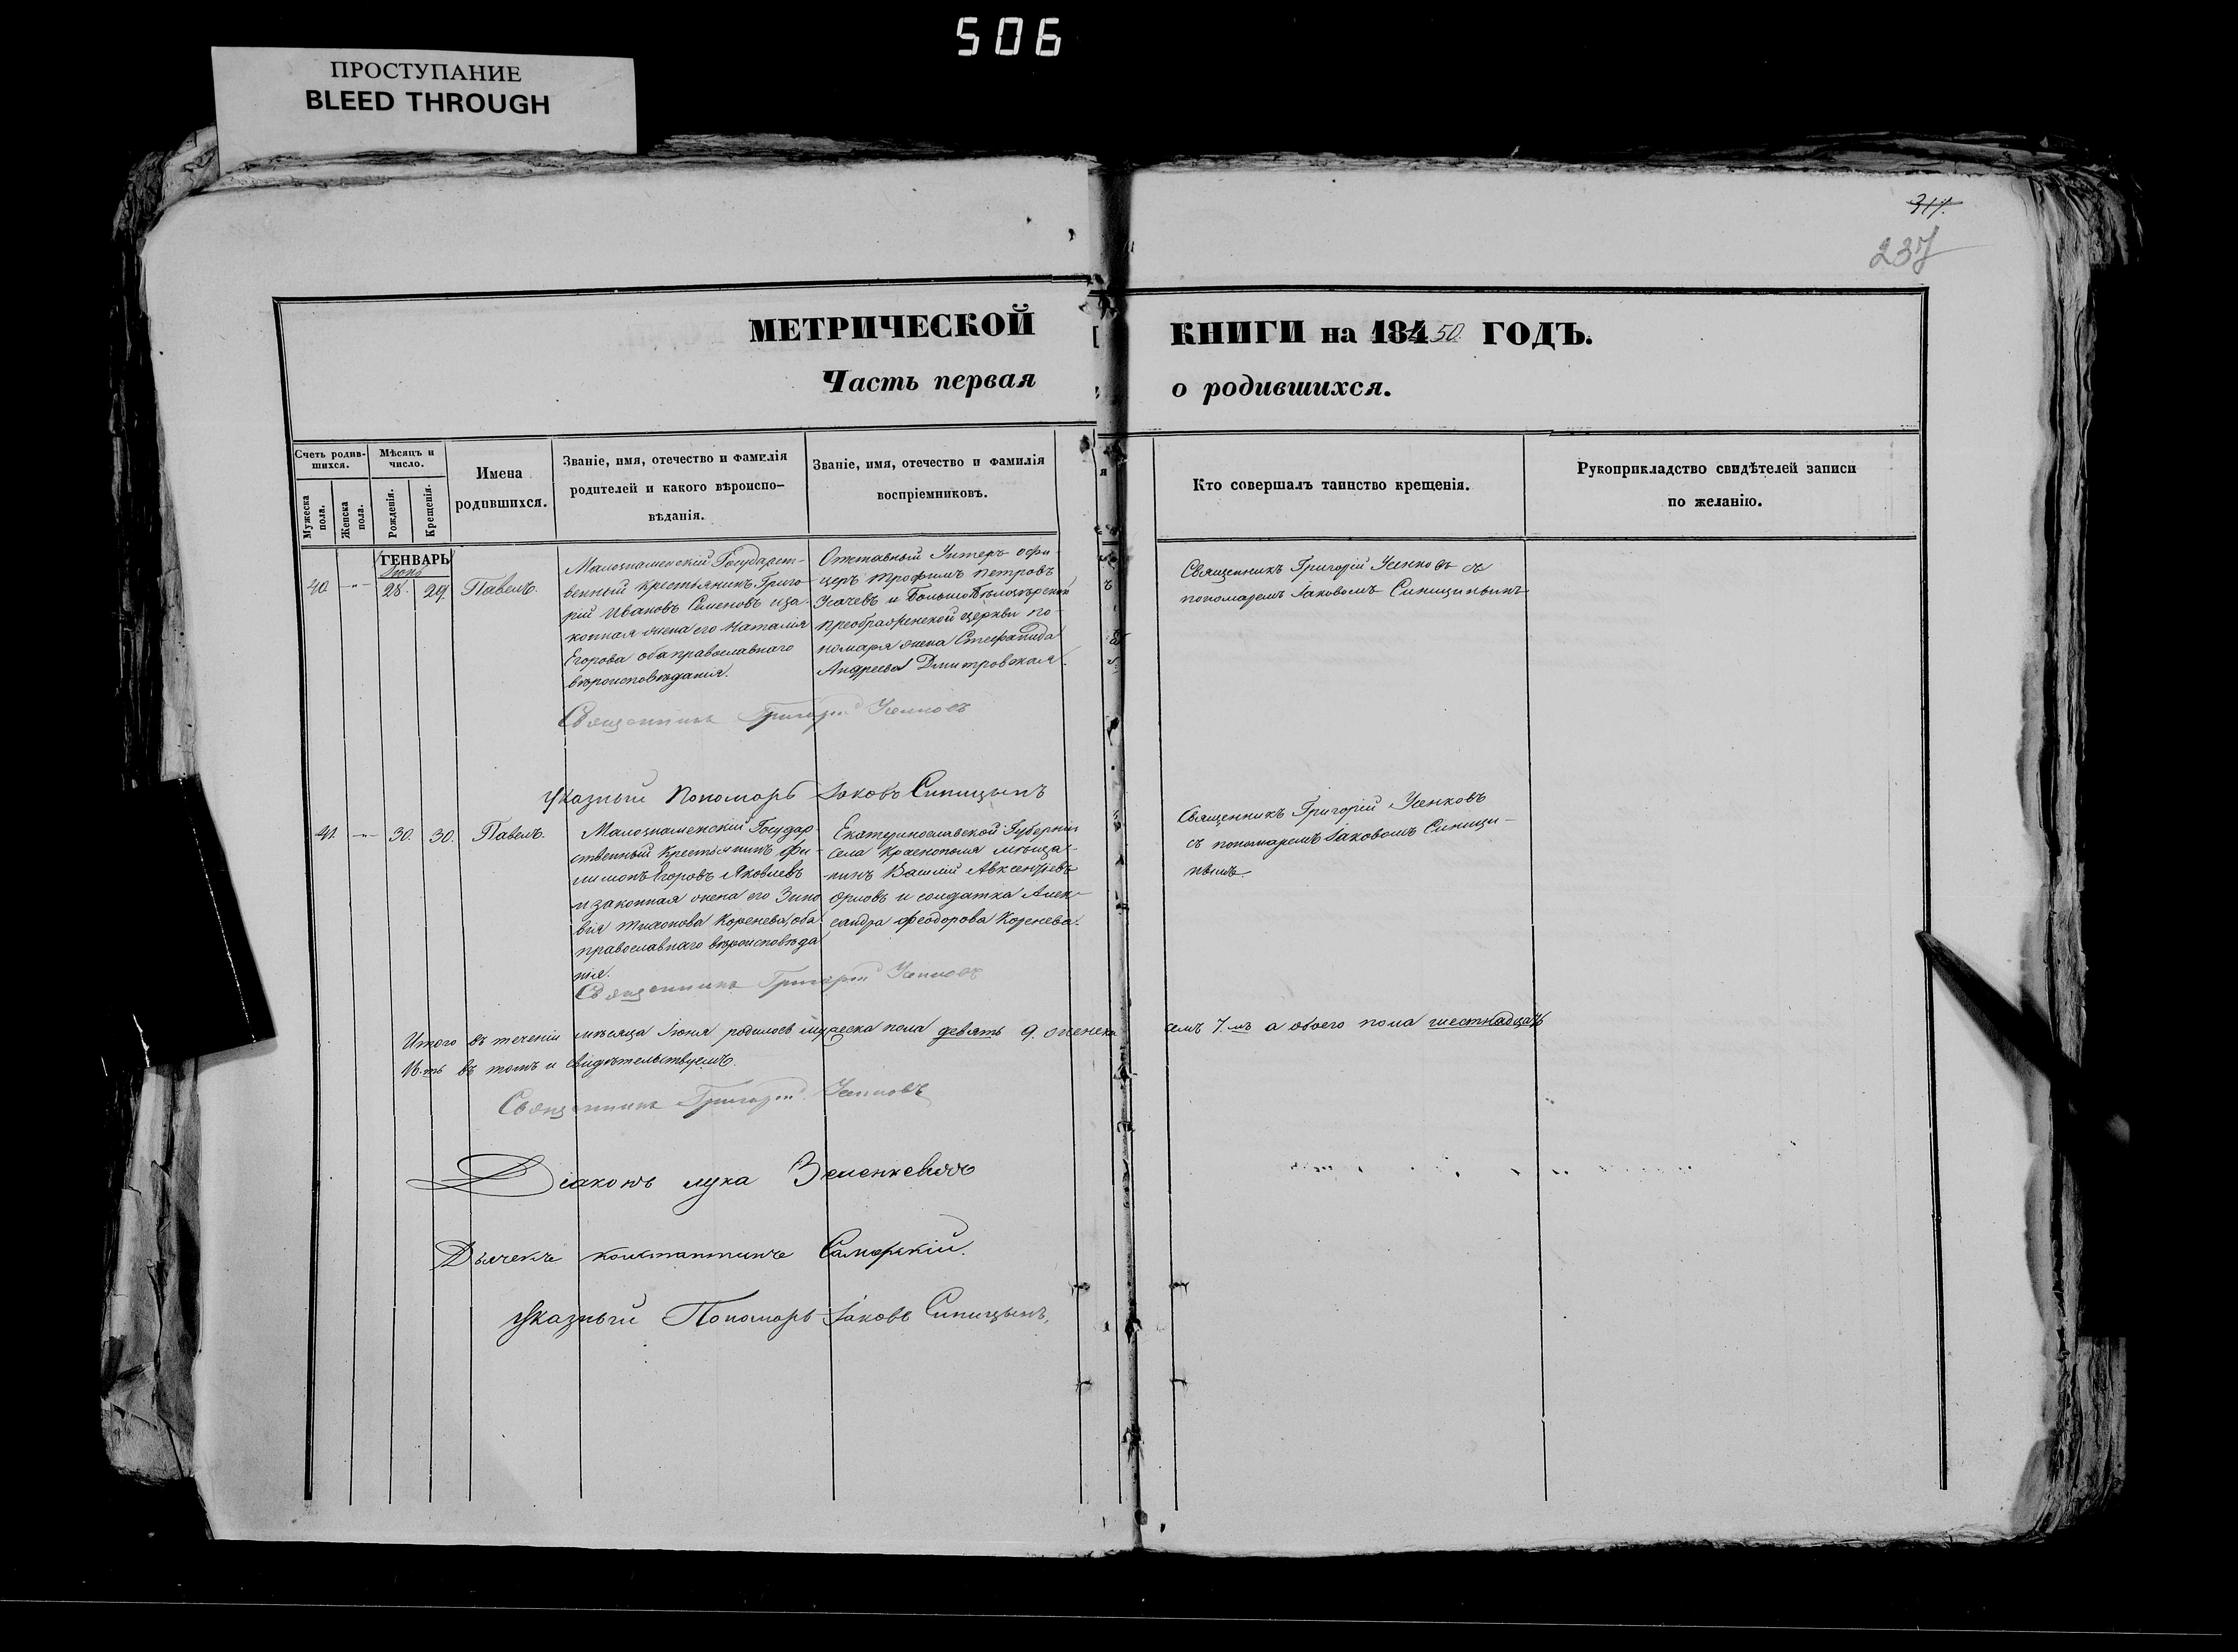 506
ПРОСТУПАНИЕ
BLEED THROUGH
317.
237
МЕТРИЧЕСКОЙ КНИГИ на 184 50. ГОДЪ.
Часть первая о родившихся.
Счетъ родив-
шихся.
Мужеска пола.
Женска пола.
Мѣсяцъ и
число.
Рожденія.
Крещенія.
Имена
родившихся.
Званіе, имя, отечество и фамилія
родителей и какого вѣроиспо-
вѣданія.
Званіе, имя, отечество и фамилія
воспріемниковъ.
Кто совершалъ таинство крещенія.
Рукоприкладство свидѣтелей записи
по желанію.
ГЕНВАРЬ
Іюнь
40. -"- 28. 29. Павелъ.
Малознаменскій Государст-
венный крестьянинъ Григо-
рій Ивановъ Семеновъ иза-
конная жена его Наталія
Егорова оба православнаго
вѣроисповѣданія.
Отставный Унтеръ офи-
церъ Трофимъ Петровъ
Усачевъ и Большобѣлозѣрской
Преображенской церкви по-
номаря жена Стефанида
Андреева Дмитровская.
Священникъ Григорій Усенковъ съ
пономаремъ Іаковомъ Синицинымъ
Священникъ Григорій Усенковъ
Указный Пономарь Іаковъ Синицынъ
41. -"- 30. 30. Павелъ.
Малознаменскій Государ-
ственный Крестьянинъ Фи-
лимонъ Егоровъ Яковлевъ
и законная жена его Зино
вія Тихонова Коренева, оба
православнаго вѣроисповѣда
нія.
Екатеринославской Губерніи
села Краснополя мѣща-
нинъ Василій Авксентіевъ
Орловъ и солдатка Алек-
сандра Феодорова Коренева.
Священникъ Григорій Усенковъ
съ пономаремъ Іаковомъ Синици-
нымъ.
Священникъ Григорій Усенковъ
Итого въ теченіи мѣсяца Іюня родилось мужеска пола девять 9. женска семъ 7.мъ а обоего пола шестнадцать
16.ть въ томъ и свидѣтельствуемъ.
Священникъ Григорій Усенковъ
Діаконъ Лука Зеленкевичъ
Дьячекъ Константинъ Самарскій.
Указный Пономарь Іаковъ Синицынъ,